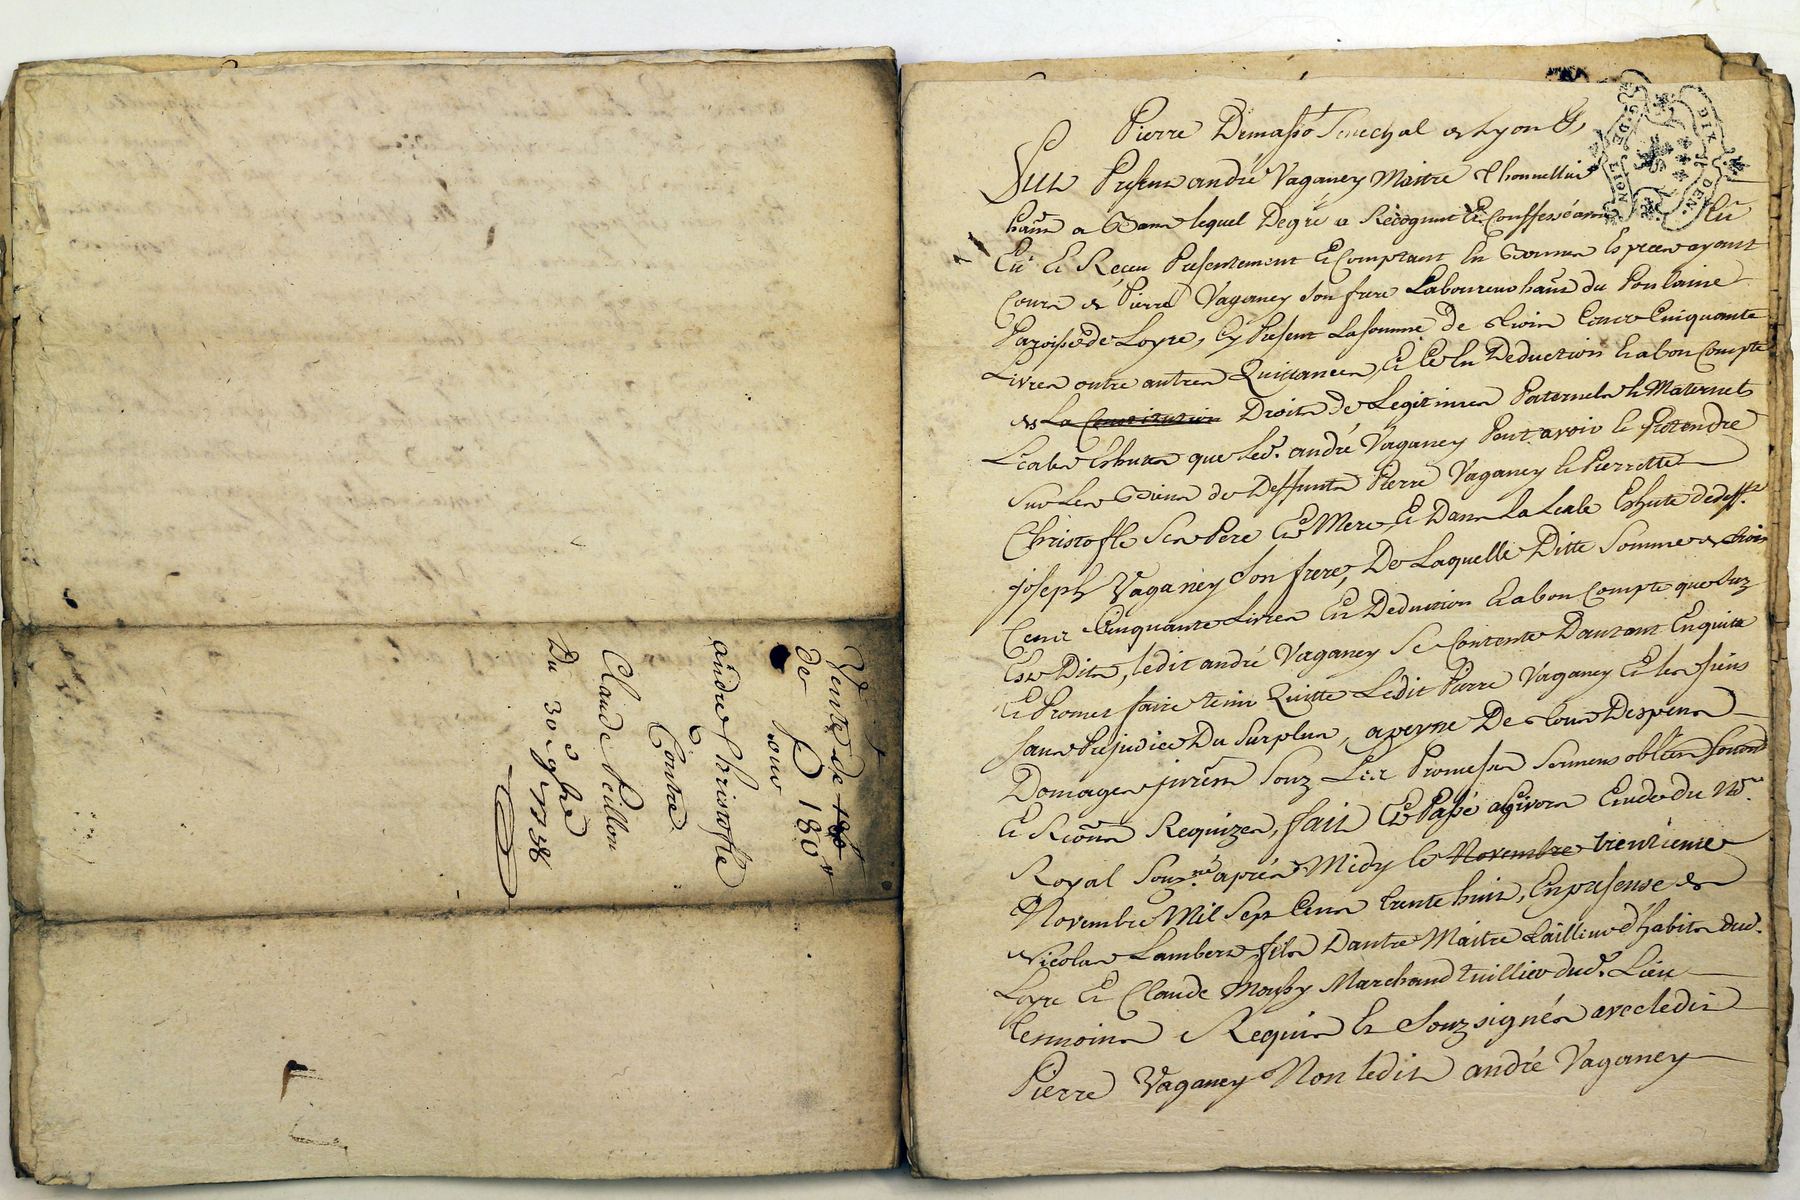 Vente de 180ᵗᵗ
de P 180ᵗᵗ
pour
andré Christofle
Contre
Claude Peillon
Du 30ᵉ 9bre 1738
Pierre Demasso Senechal de Lyon &,
Fut Present andré Vaganey Maitre
lequel Degré a Recognut Et Confessé avoir Eu
Et Receu Presentement Et Comptant En Bonnes Especes ayant
Cours de Pierre Vaganey Son frere Laboureur hant du Poulaine
Paroisse de Loyre, Cy Present La somme de Trois Cents Cinquante
Livres outre autres Quittances, Et Ce En Deduction Et a bon Compte
des La Constitution Droits de Legitimes Paternels Et Maternels
Leale Eshutes que led. andré Vaganey Peut avoir Et Pretendre
Sur Les Biens de Deffunts Pierre Vaganey Et Pierrette
Christofle Ses Pere Et Mere, Et Dans La Leale Eshute de deff.t
joseph Vaganey Son frere, De Laquelle Ditte Somme de trois
Cents Cinquante Livres En Deduction Et a bon Compte que Suz
Est Dits, ledit andré Vaganey Se Contente D'autant En quitte
Et Promet faire tenir Quitte Ledit Pierre Vaganey Et les siens
Sans Prejudice Du Surplus, a peyne De tous Despens
Domages Souz Les Promesses Sermens
Et Requizes, fait Et Passé a givors Etude du No.re
Royal Souz.né après Midy le Novembre trentieme
Novembre Mil Sept Cents trente huit, En presense de
Nicolas Lambert fils D'autre Maitre d'habits dud.
Loyre Et Claude Marchand tuillier dud. Lieu
temoins Requis Et Souz signés avec ledit
Pierre Vaganey Non ledit andré Vaganey
GEN. DE LION